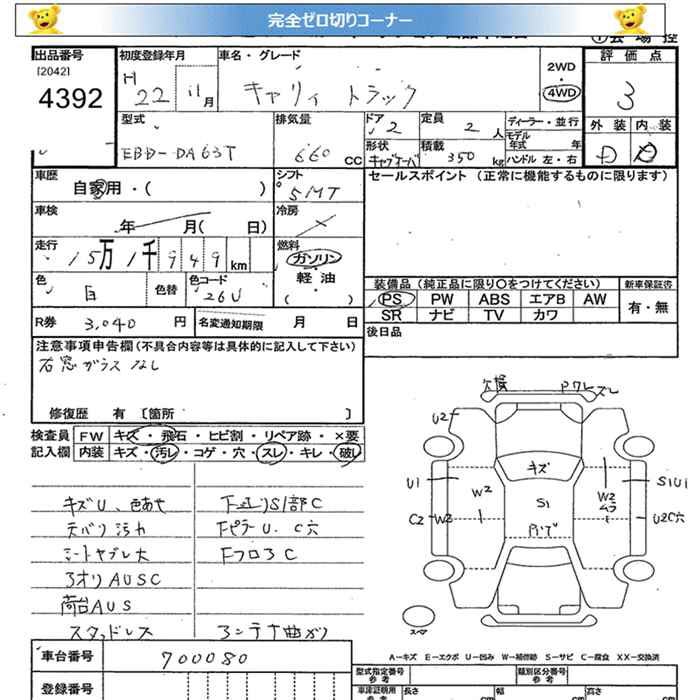 完全ゼロ切りコーナー
出品番号
[2042]
4392
初度登録年月
H 22 11月
車名・グレード
キャリィ トラック
2WD
・
4WD
評価点
3
外装 内装
D D
型式
EBD-DA63T
排気量
660 CC
ドア 2
形状
定員 2人
積載 350 kg
ディーラー・並行
モデル
年式 年
ハンドル 左・右
車歴
自家用・( )
シフト
5MT
セールスポイント (正常に機能するものに限ります)
車検
年 月( 日)
冷房
走行
15万1千949km
燃料
ガソリン
軽油
( )
色
白
色替
色コード
26U
装備品(純正品に限り〇をつけてください)
新車保証書
PS PW ABS エアB AW
有・無
SR ナビ TV カワ
R券 3,040 円
名変通知期限 月 日
後日品
注意事項申告欄(不具合内容等は具体的に記入して下さい)
右窓ガラスなし
修復歴 有 [箇所 ]
検査員
記入欄
FW キズ・飛石・ヒビ割・リペア跡・×要
内装 キズ・汚レ・コゲ・穴・スレ・キレ・破レ
キズU、色あせ
天バリ汚れ
シートヤブレ大
アオリAUSC
荷台AUS
スタッドレス
下廻りS1部C
FピラーU、C穴
FフロアC
アンテナ曲がり
欠損
U2
キズ
U1
W2
S1
W2
ムラ
S1U1
C2
W3
U2C穴
スペア
A−キズ E−エクボ U−凹み W−補修跡 S−サビ C−腐食 XX−交換済
車台番号
700080
登録番号
型式指定番号
参考
類別区分番号
参考
車庫証明用
参考
長さ
cm
幅
cm
高さ
cm